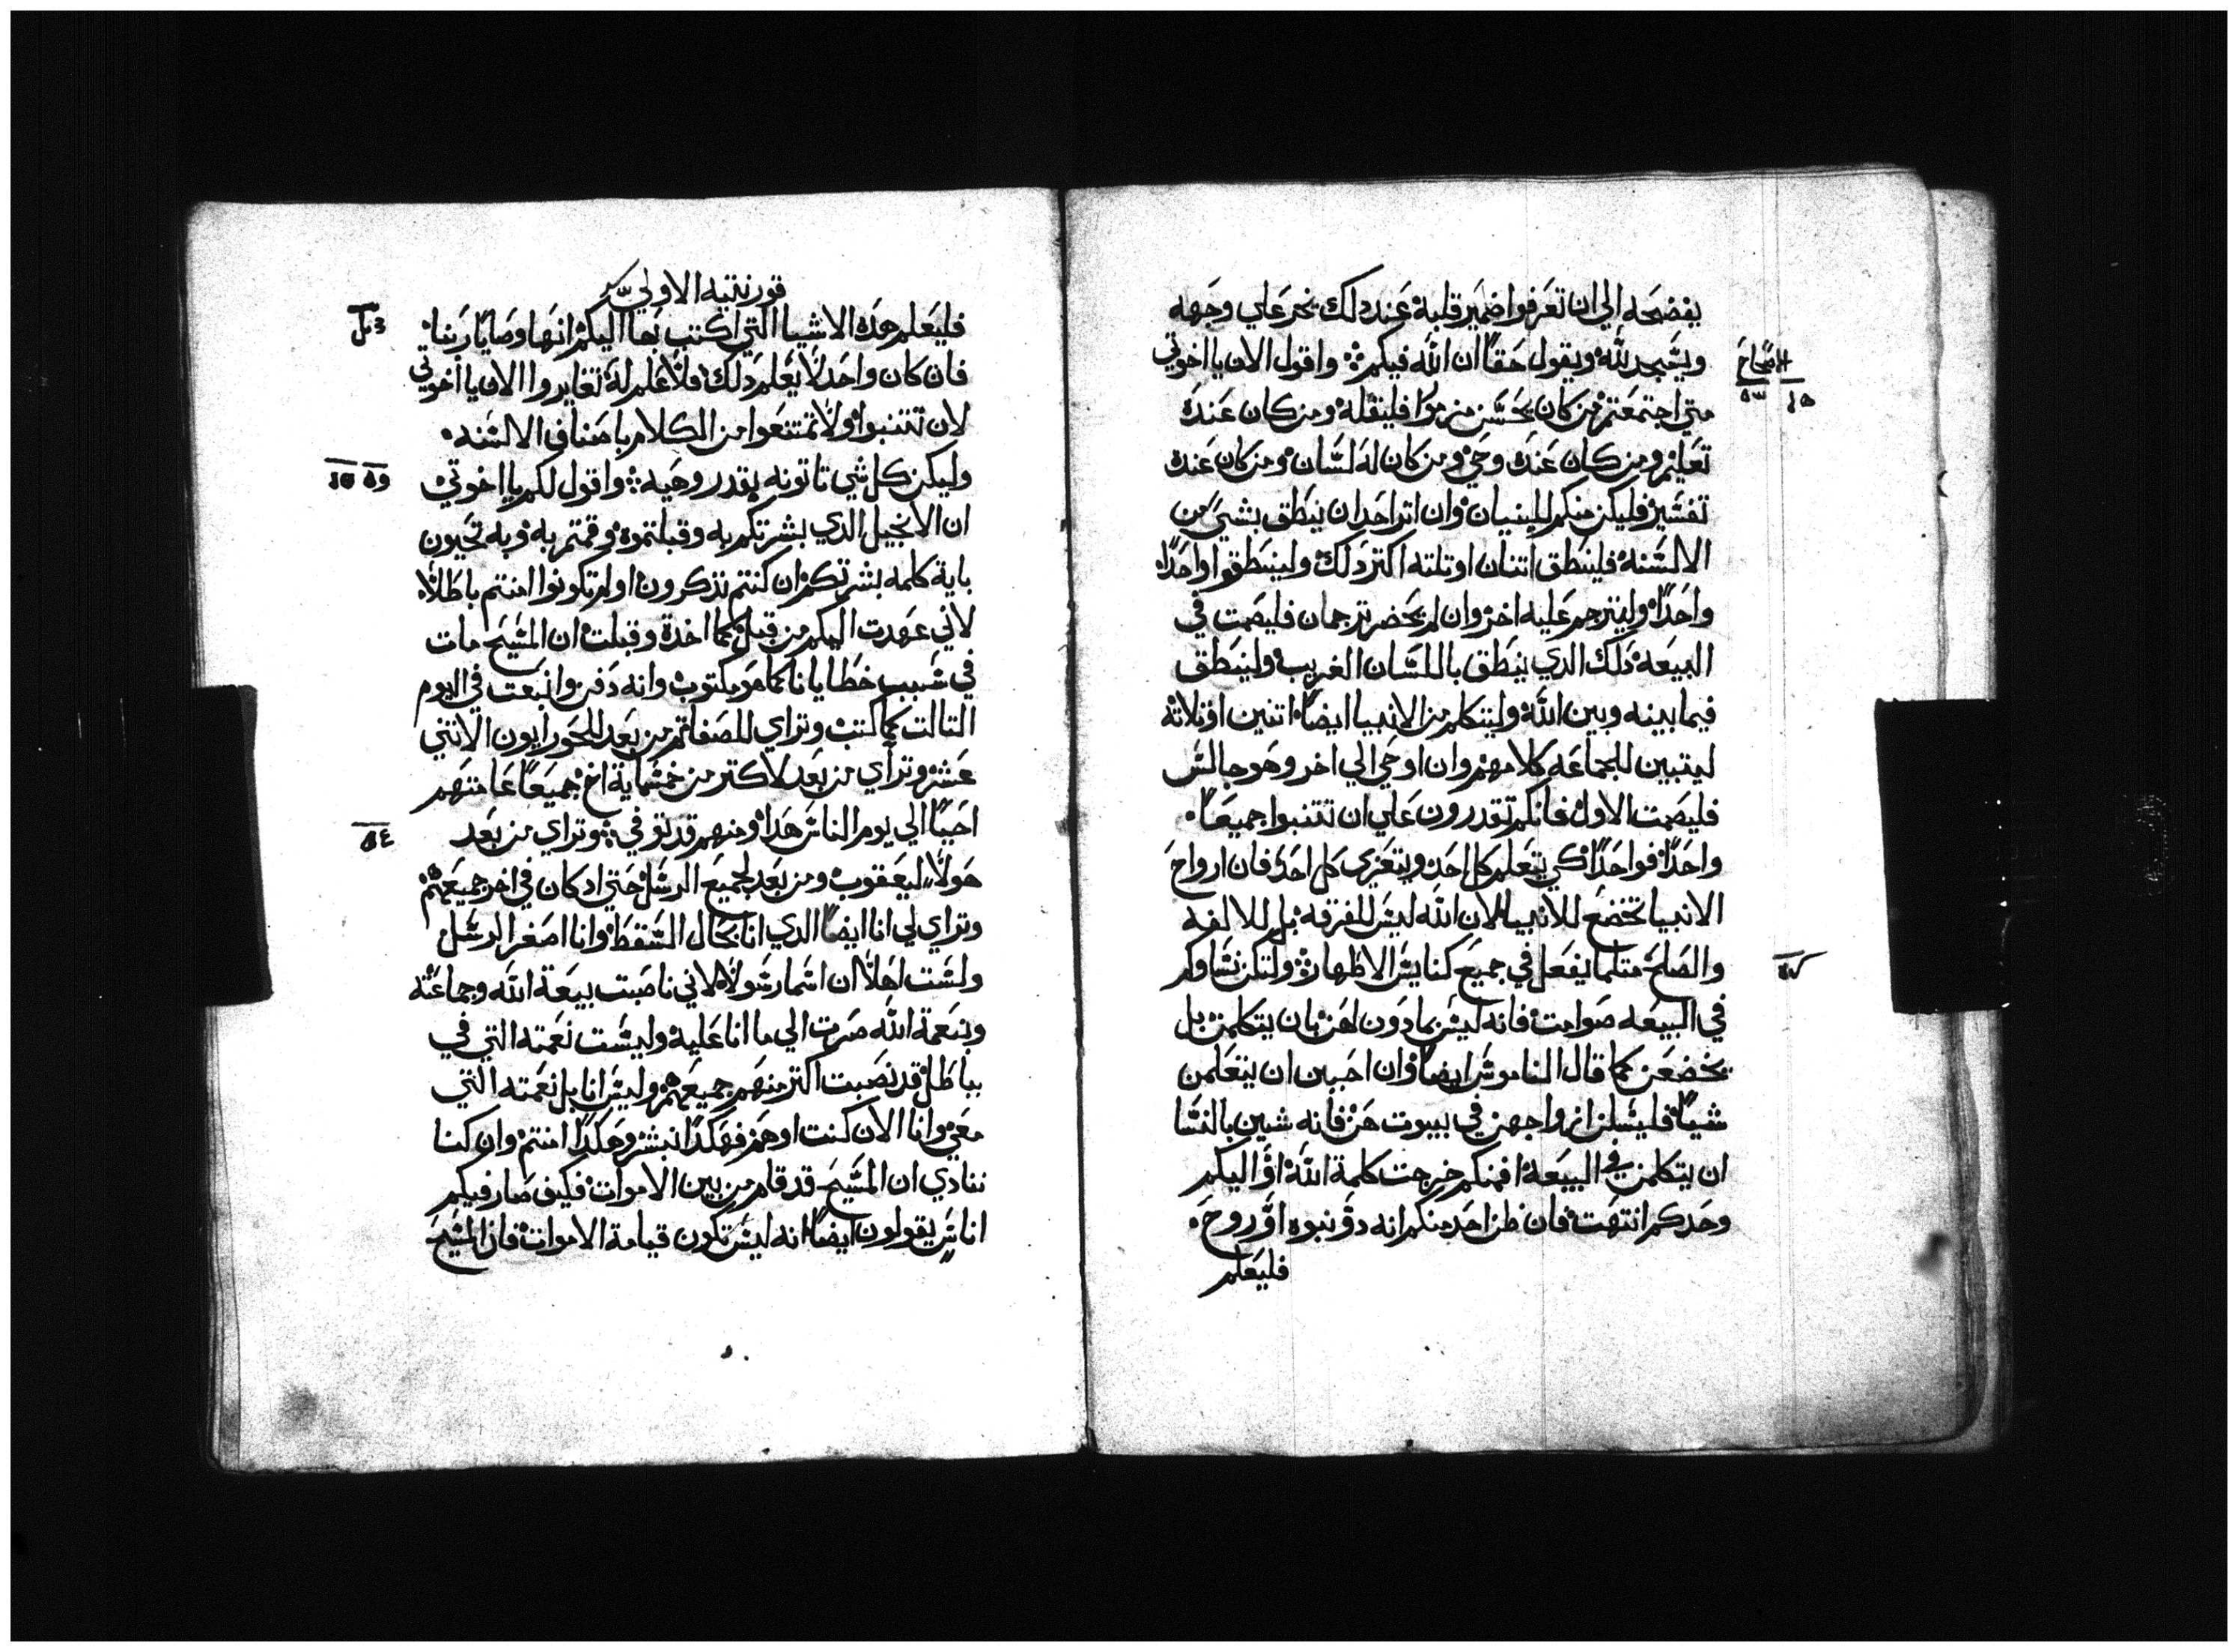 يفضحه الي ان تعرفوا ضمير قلبه عند دلك يخر علي وجهه
ويسجد لله ويقول حقا ان الله فيكم واقول الان يا اخوتي
الاصحاح
متي اجتمعتم من كان يحسن مزمورا فليقله ومن كان عنده
تعليم ومن كان عنده وحي ومن كان له لسان ومن كان عنده
تفسير فليكن منكم للبنيان وان اتر احد ان ينطق بشي من
الالسنه فلينطق اتنان او تلته اكتر دلك ولينطقوا واحدا
واحدا وليترجم عليه اخر وان لم يحضر ترجمان فليصمت في
البيعه دلك الدي ينطق باللسان الغريب ولينطق
فيما بينه وبين الله وليتكلم من الانبيا ايضا اتنين او تلاته
ليتبين للجماعه كلامهم وان اوحي الي اخر وهو جالس
فليصمت الاول فانكم تقدرون علي ان تتنبوا جميعا
واحدا فواحدا كي يتعلم كل احد ويتعزي كل احد فان ارواح
الانبيا تخضع للانبيا لان الله ليس للفرقه بل للالفه
والصلح متلما يفعل في جميع كنايس الاطهار ولتكن نساوكم
في البيعه صوامت فانه ليس بمادون لهن بان يتكلمن بل
يخضعن كما قال الناموس ايضا وان احببن ان يتعلمن
شيا فليسلن ازواجهن في بيوت هن فانه شين بالنسا
ان يتكلمن في البيعه افمنكم خرجت كلمة الله او اليكم
وحدكم انتهت فان ظن احد منكم انه دو نبوه او روح
فليعلم
قورنتيه الاولي
فليعلم هده الاشيا التي اكتب بها اليكم انها وصايا ربنا
فان كان واحد لا يعلم دلك فلا علم له تغايروا الان يا اخوتي
لان تتنبوا ولا تمتنعوا من الكلام باصناف الالسنه
وليكن كل شي تاتونه بقدر وهيه واقول لكم يا اخوتي
ان الانجيل الدي بشرتكم به وقبلتموه وقمتم به وبه تحيون
باية كلمه بشرتكم ان كنتم تدكرون او لم تكونوا امنتم باطلا
لاني عهدت اليكم من قبل كما اخدة وقبلت ان المسيح مات
في سبب خطايانا كما هو مكتوب وانه دفن وانبعت في اليوم
التالت كما كتب وتراي للصفا تم من بعد للحورايون الاتني
عشر وتراي من بعد لاكتر من خمسماية اخ جميعا عامتهم
احيا الي يوم الناس هدا ومنهم قد توفي وتراي من بعد
هولا ليعقوب ومن بعد لجميع الرسل حتي اد كان في اخر جميعهم
وتراي لي انا ايضا الدي انا بحال السقط وانا اصغر الرسل
ولست اهلا ان اسما رسولا لاني ناصبت بيعة الله وجماعته
وبنعمة الله صرت الي ما انا عليه وليست نعمته التي في
بباطل قد نصبت اكتر منهم جميعهم وليس انا بل نعمته التي
معي وانا الان كنت او هم فهكدا نبشر وهكدا امنتم وان كنا
ننادي ان المسيح قد قام من بين الاموات فكيف صار فيكم
اناس يقولون ايضا انه ليس تكون قيامة الاموات فان المسيح